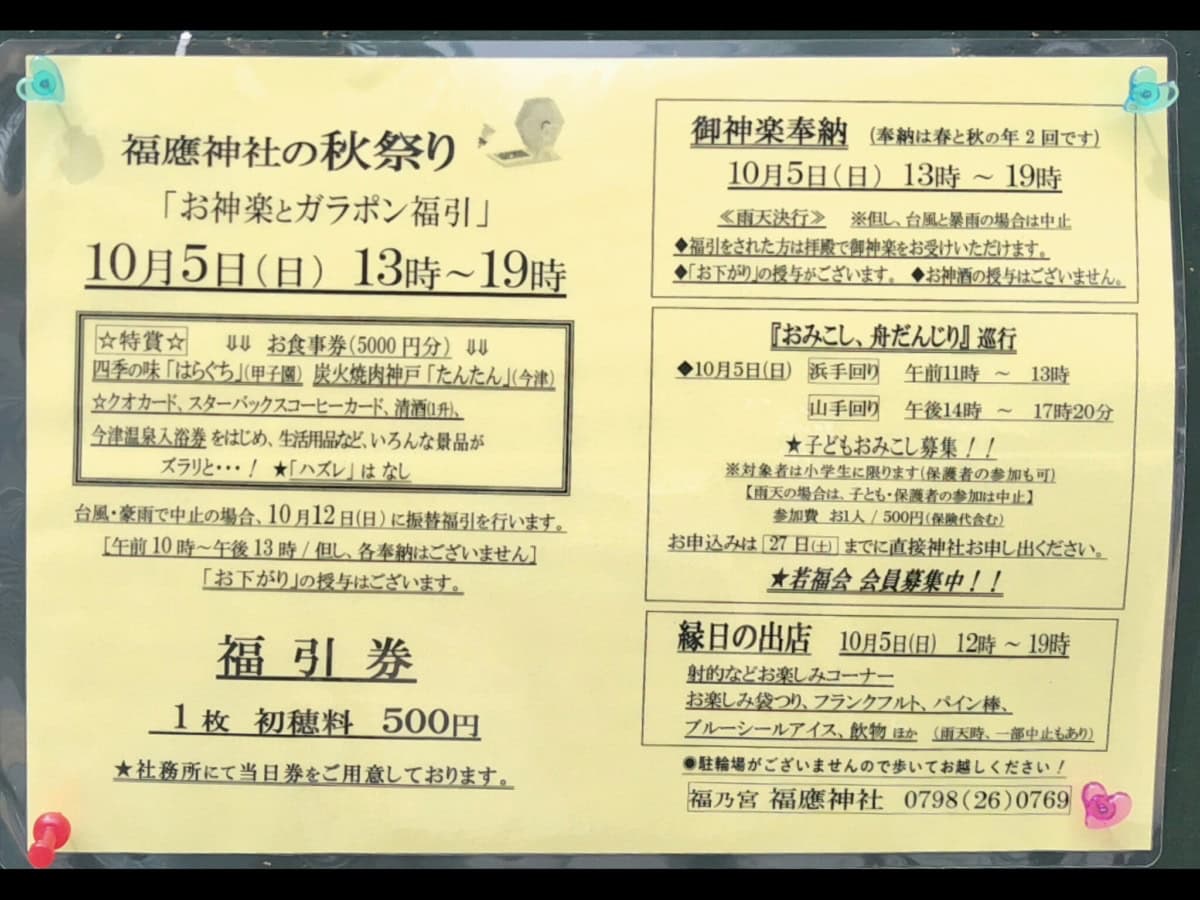 福應神社の秋祭り
「お神楽とガラポン福引」
10月5日(日) 13時～19時
☆特賞☆ ⇓⇓ お食事券(5000円分) ⇓⇓
四季の味「はらぐち」(甲子園) 炭火焼肉神戸「たんたん」(今津)
☆クオカード、スターバックスコーヒーカード、清酒(1升)、
今津温泉入浴券をはじめ、生活用品など、いろんな景品が
ズラリと・・・！ ★「ハズレ」は なし
台風・豪雨で中止の場合、10月12日(日)に振替福引を行います。
[午前10時～午後13時 / 但し、各奉納はございません]
「お下がり」の授与はございます。
福引券
1枚 初穂料 500円
★社務所にて当日券をご用意しております。
御神楽奉納 (奉納は春と秋の年2回です)
10月5日(日) 13時 ～ 19時
≪雨天決行≫ ※但し、台風と暴雨の場合は中止
◆福引をされた方は拝殿で御神楽をお受けいただけます。
◆「お下がり」の授与がございます。 ◆お神酒の授与はございません。
『おみこし、舟だんじり』巡行
◆10月5日(日) 浜手回り 午前11時 ～ 13時
山手回り 午後14時 ～ 17時20分
★子どもおみこし募集！！
※対象者は小学生に限ります(保護者の参加も可)
【雨天の場合は、子ども・保護者の参加は中止】
参加費 お1人 / 500円(保険代含む)
お申込みは 27日(土) までに直接神社お申し出ください。
★若福会 会員募集中！！
縁日の出店 10月5日(日) 12時 ～ 19時
射的などお楽しみコーナー
お楽しみ袋つり、フランクフルト、パイン棒、
ブルーシールアイス、飲物 ほか (雨天時、一部中止もあり)
◉駐輪場がございませんので歩いてお越しください！
福乃宮 福應神社 0798(26)0769